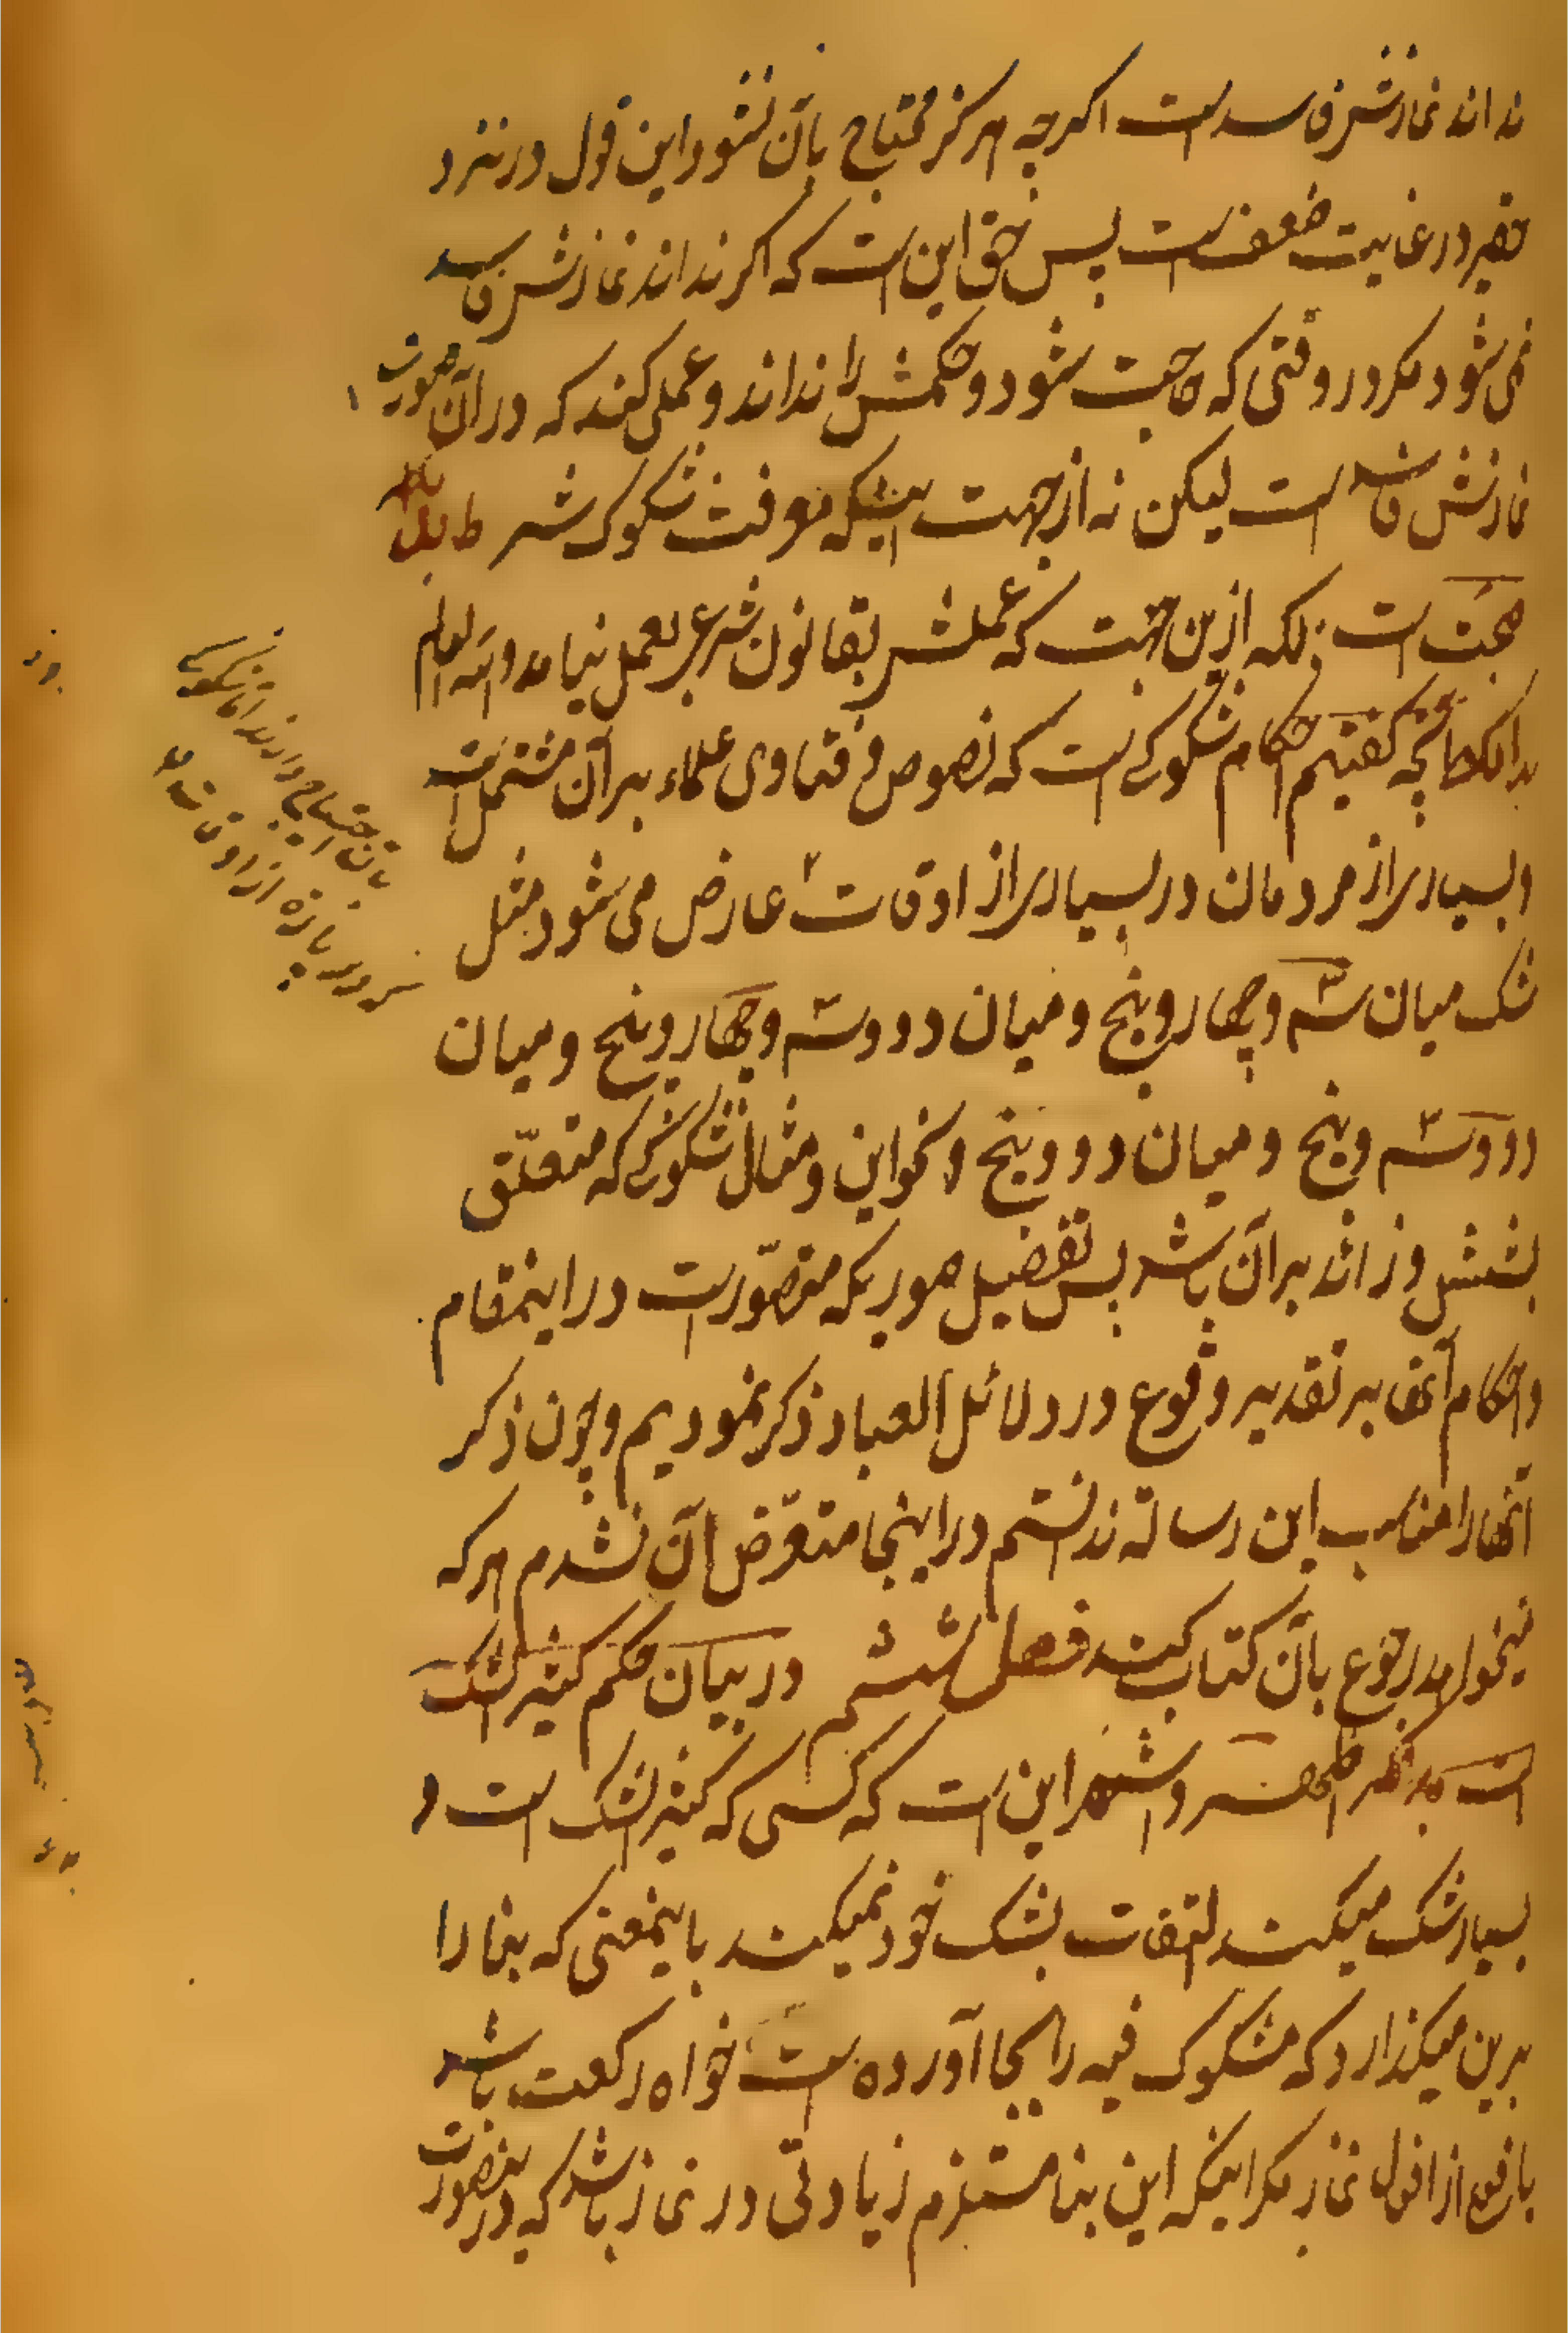 نداند نمازش فاسد است اگرچه هرگز محتاج بآن نشود و این قول در نزد
حقیر در غایت ضعف است پس حق این است که اگر نداند نمازش فاسد
نمی‌شود مگر در وقتی که حاجت شود و حکمش را نداند و عملی کند که در آن صورت
نمازش فاسد است لیکن نه از جهت اینکه معرفت شکوک شرط
صحت است بلکه ازین جهت که عملش بقانون شرعی بعمل نیامده والله العالم
بدانکه آنچه گفتیم احکام شکوکی است که نصوص و فتاوی علماء بر آن مشتمل است
و بسیاری از مردمان در بسیاری از اوقات عارض می‌شود مثل
شک میان سه و چهار و پنج و میان دو و سه و چهار و پنج و میان
دو و سه و پنج و میان دو و پنج و نحو این و مثال شکوکی که متعلّق
بشش و زائد بر آن باشد پس تفصیل صوریکه متصوّر است در اینمقام
و احکام آنها بر تقدیر وقوع در دلائل العباد ذکر نمودیم و چون ذکر
آنها را مناسب این رساله ندانستم در اینجا متعرّض آن نشدم هر که
میخواهد رجوع بآن کتاب کند فصل ششم در بیان حکم کثیر الشک
است بدانکه اظهر و اشهر این است که کسی که کثیر الشک است و
بسیار شک میکند التفات بشک خود نمیکند باینمعنی که بنا را
برین میگذارد که مشکوک فیه را بجا آورده است خواه رکعت باشد
یا فعلی از افعال نماز مگر اینکه این بنا مستلزم زیادتی در نماز باشد که درینصورت
بآن احتیاج دارند اما شکوکی
پاره از اوقات